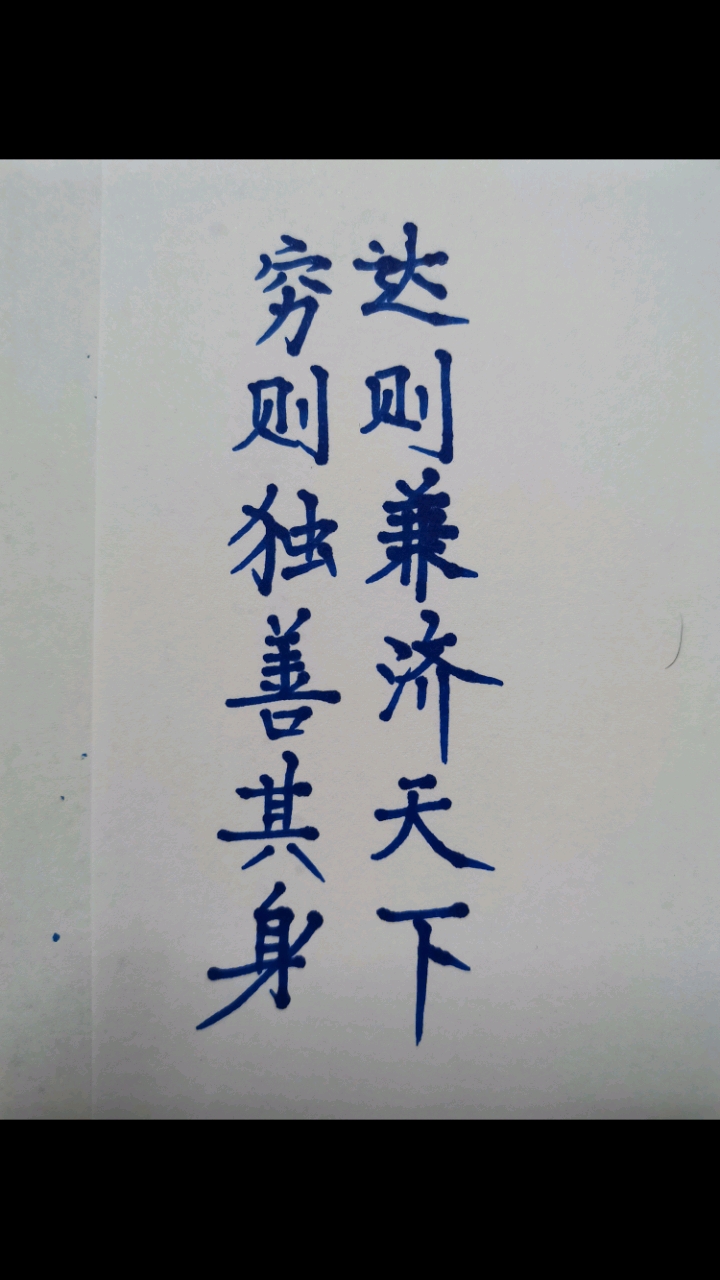 达则兼济天下
穷则独善其身